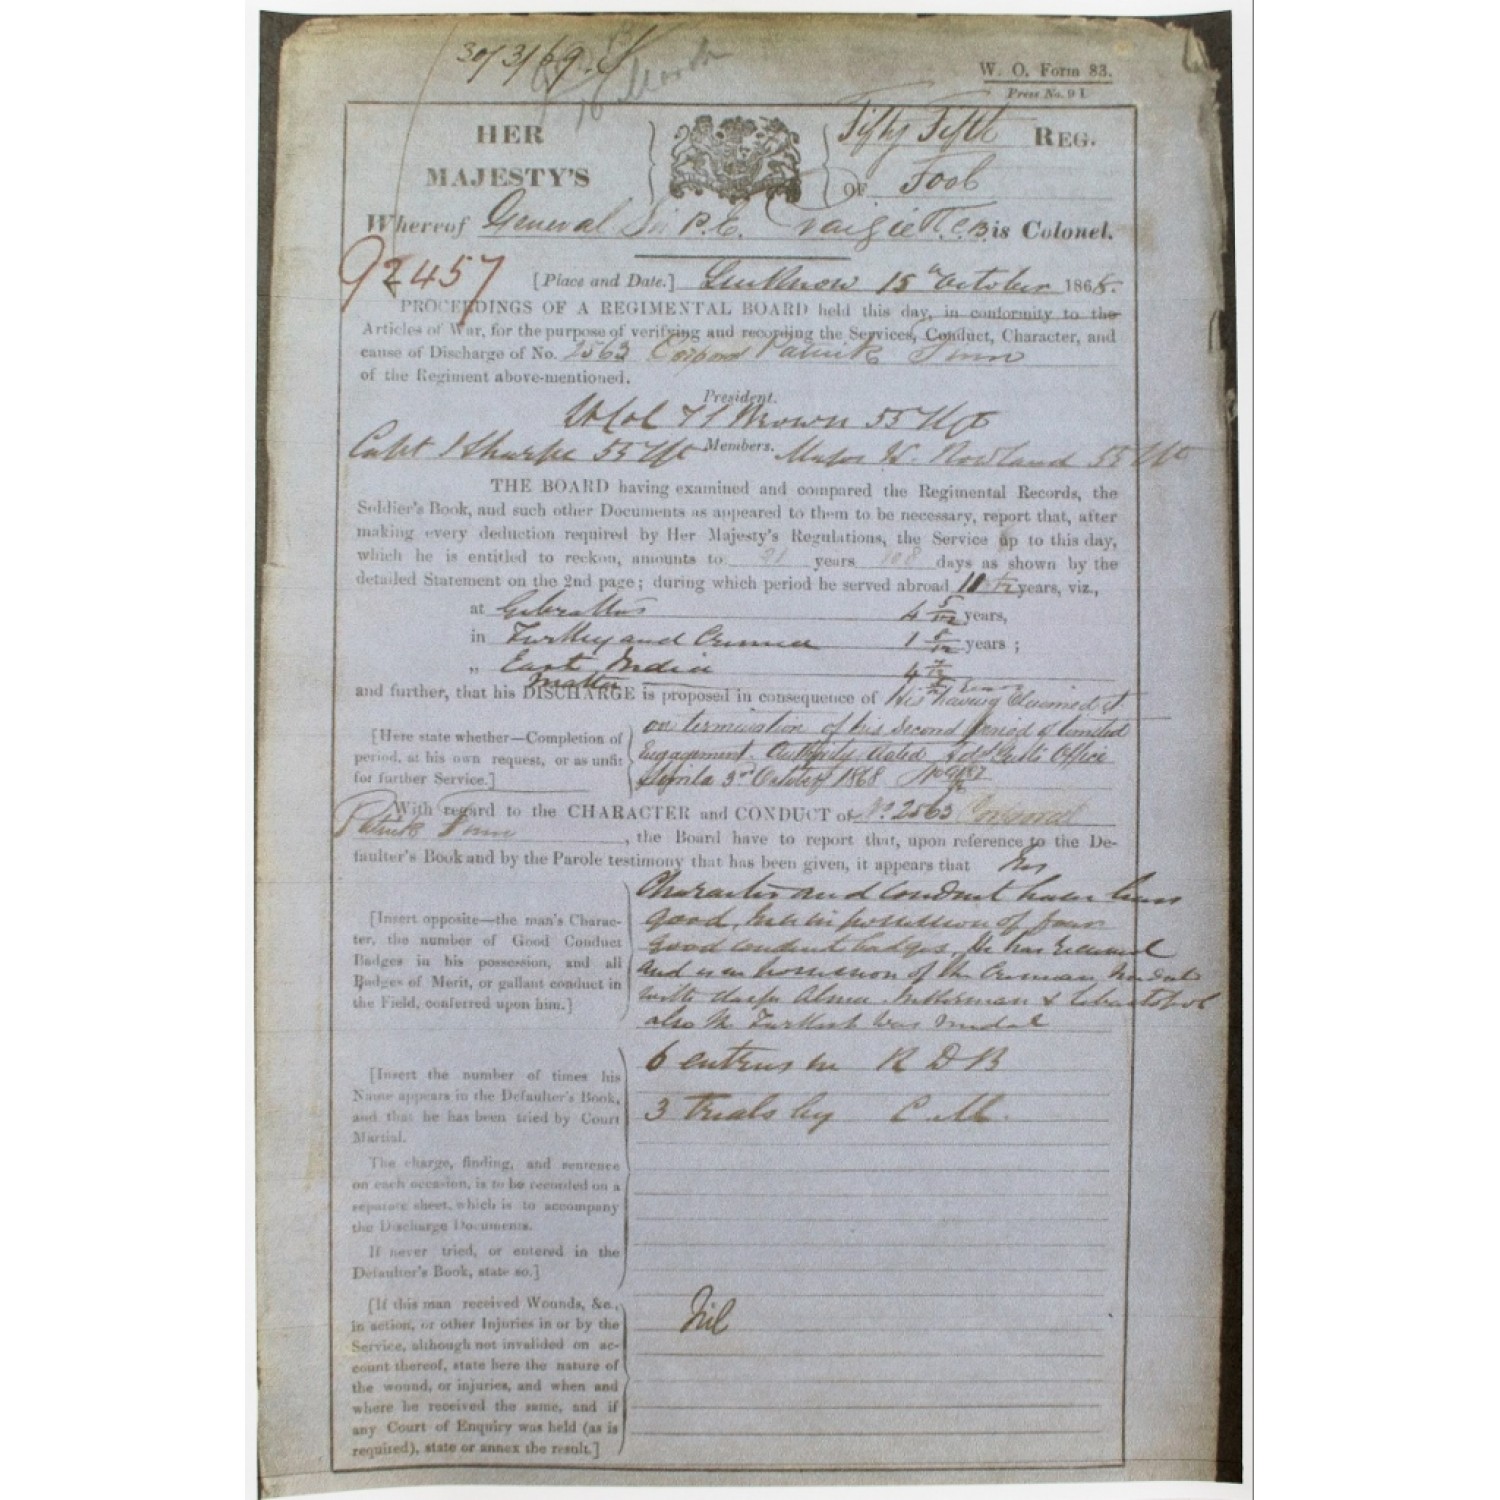 30/3/69
W. O. Form 83.
Press No. 9 I.
HER
MAJESTY'S
Fifty Fifth REG.
OF Foot
Whereof General Sir P. E. Craigie K.C.B. is Colonel.
92457
[Place and Date.] Lucknow 15th October 1868.
PROCEEDINGS OF A REGIMENTAL BOARD held this day, in conformity to the
Articles of War, for the purpose of verifying and recording the Services, Conduct, Character, and
cause of Discharge of No. 2563 Corporal Patrick
of the Regiment above-mentioned.
President.
Brown 55
Members.
Capt Sharpe 55 Major W. Rowland 55
THE BOARD having examined and compared the Regimental Records, the
Soldier's Book, and such other Documents as appeared to them to be necessary, report that, after
making every deduction required by Her Majesty's Regulations, the Service up to this day,
which he is entitled to reckon, amounts to 21 years 108 days as shown by the
detailed Statement on the 2nd page; during which period he served abroad years, viz.,
at Gibraltar 4 5/12 years,
in Turkey and Crimea 1 years;
„ East India 4
Malta
and further, that his DISCHARGE is proposed in consequence of His having claimed it
[Here state whether—Completion of
period, at his own request, or as unfit
for further Service.]
on termination of his second period of limited
Engagement. Authority dated Office
Simla 3rd October 1868
With regard to the CHARACTER and CONDUCT of No 2563 Corporal
Patrick , the Board have to report that, upon reference to the De-
faulter's Book and by the Parole testimony that has been given, it appears that his
[Insert opposite—the man's Charac-
ter, the number of Good Conduct
Badges in his possession, and all
Badges of Merit, or gallant conduct in
the Field, conferred upon him.]
Character and conduct have been
good, he is in possession of four
good conduct badges, He has received
and is in possession of the Crimean Medal
with clasps Alma, Inkerman & Sebastopol
also the Turkish War medal
[Insert the number of times his
Name appears in the Defaulter's Book,
and that he has been tried by Court
Martial.
The charge, finding, and sentence
on each occasion, is to be recorded on a
separate sheet, which is to accompany
the Discharge Documents.
If never tried, or entered in the
Defaulter's Book, state so.]
6 entries in R D B
3 trials by C. M.
[If this man received Wounds, &c.,
in action, or other Injuries in or by the
Service, although not invalided on ac-
count thereof, state here the nature of
the wound, or injuries, and when and
where he received the same, and if
any Court of Enquiry was held (as is
required), state or annex the result.]
Nil